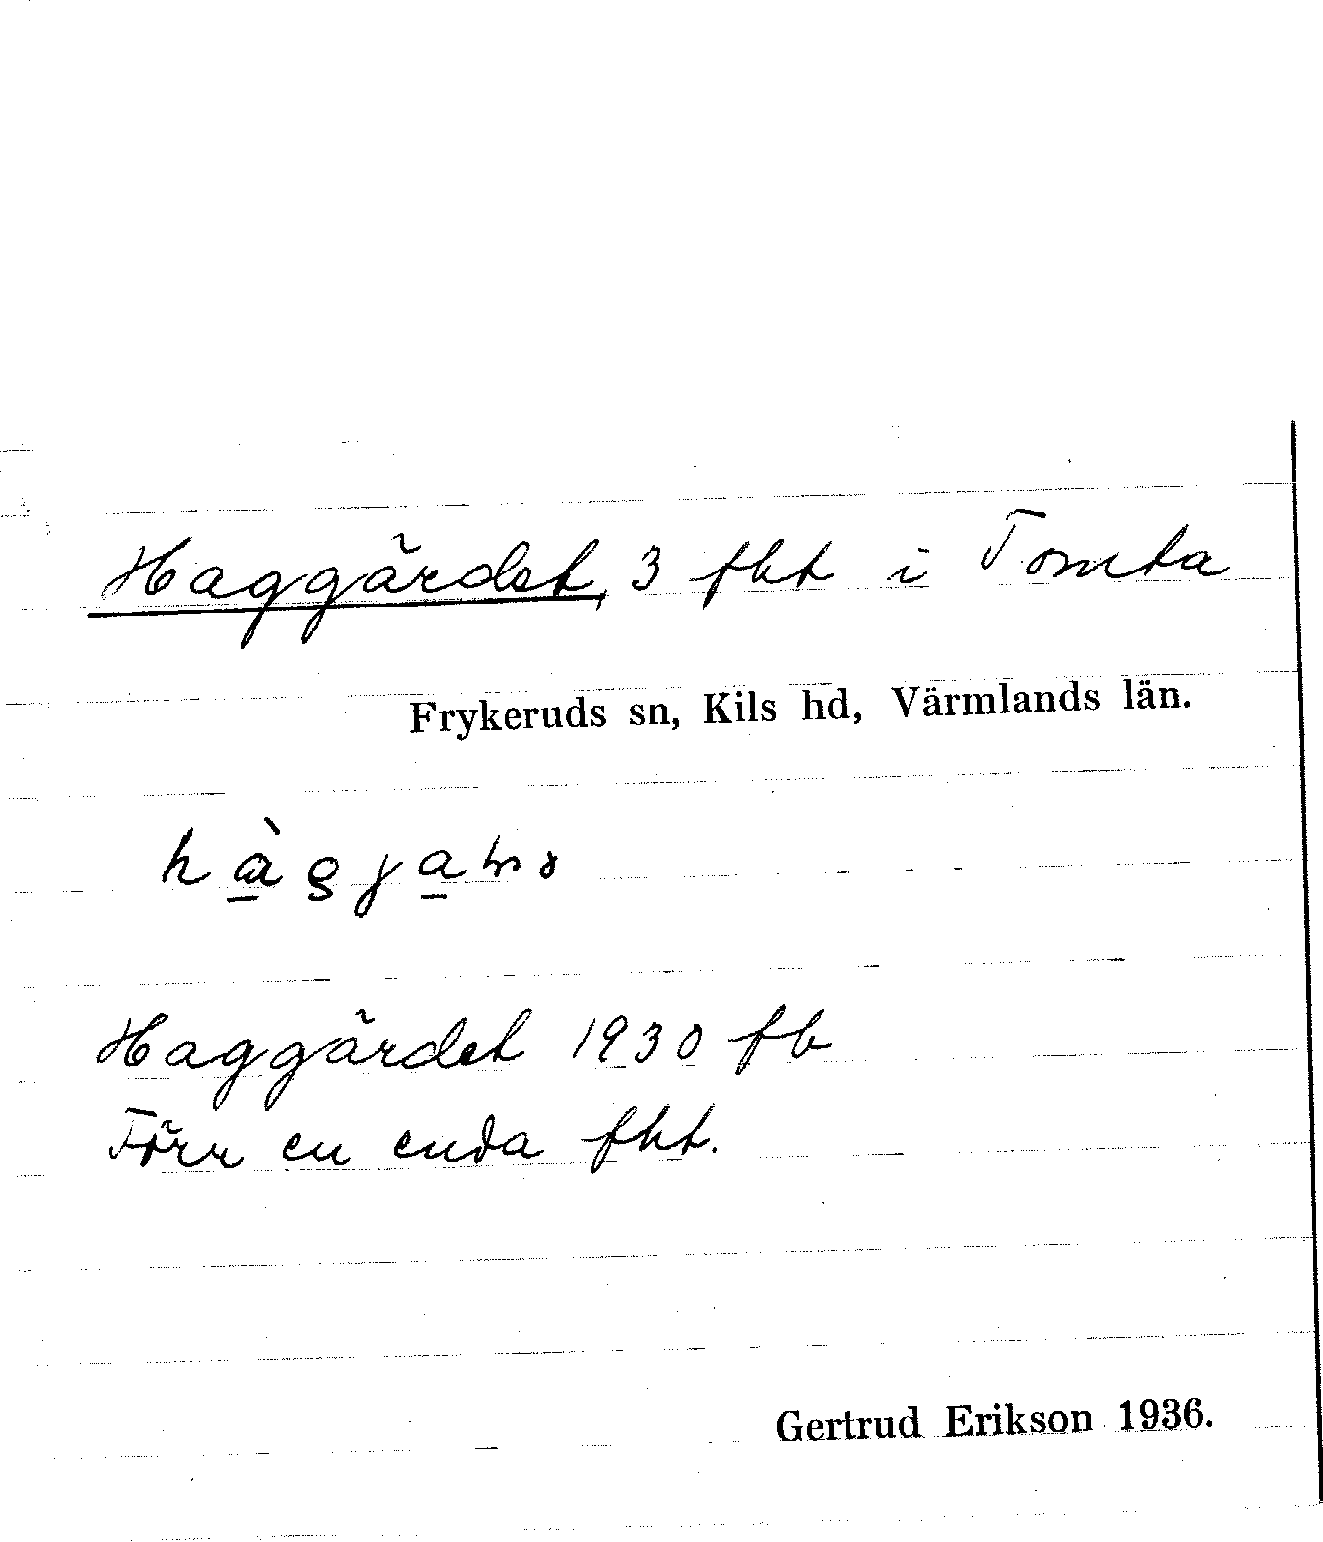 Haggärdet, 3 fht i Tomta
Frykeruds sn, Kils hd, Värmlands län.
Haggärdet 1930 fb
Förr en enda fht.
Gertrud Erikson 1936.